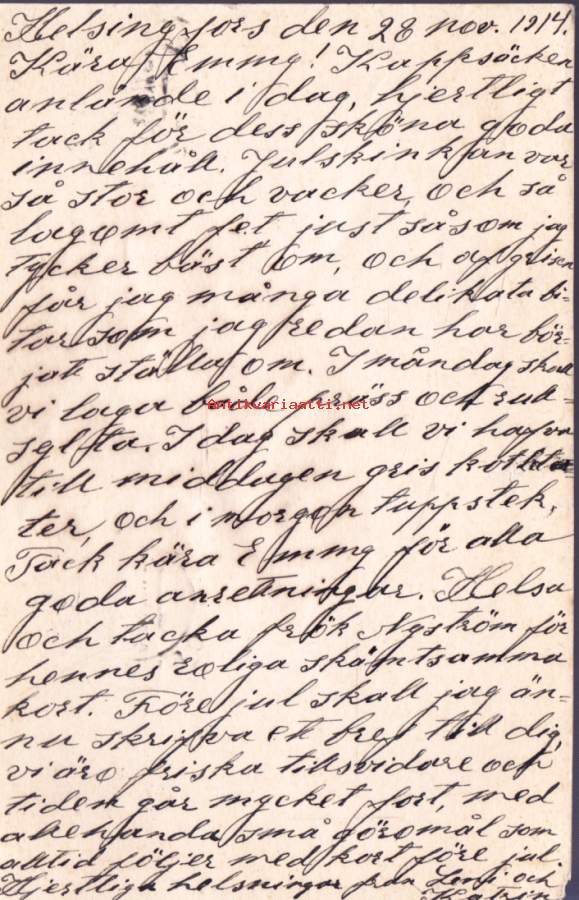 Helsingfors den 28 nov. 1914.
Kära Emmy! Kappsäcken
anlände i dag, hjertligt
tack för dess sköna goda
innehåll. Julskinkan var
så stor och vacker, och så
lagomt fet just såsom jag
tycker bäst om, och af grisen
får jag många delikata bi-
tar som jag redan har bör-
jatt ställa om. I måndag skall
vi laga både och rull-
sylta. I dag skall vi hafva
till middagen gris kotlet-
ter, och i morgon tuppstek.
Tack kära Emmy för alla
goda anrettningar. Helsa
och tacka frök Nyström för
hennes roliga skämtsamma
kort. Före jul skall jag än-
nu skrifva ett bref till dig,
vi äro friska tillsvidare och
tiden går mycket fort, med
allehanda små göromål som
alltid följer med kort före jul.
Hjertliga helsningar från Leni och
Katrin
Antikvariaatti.net